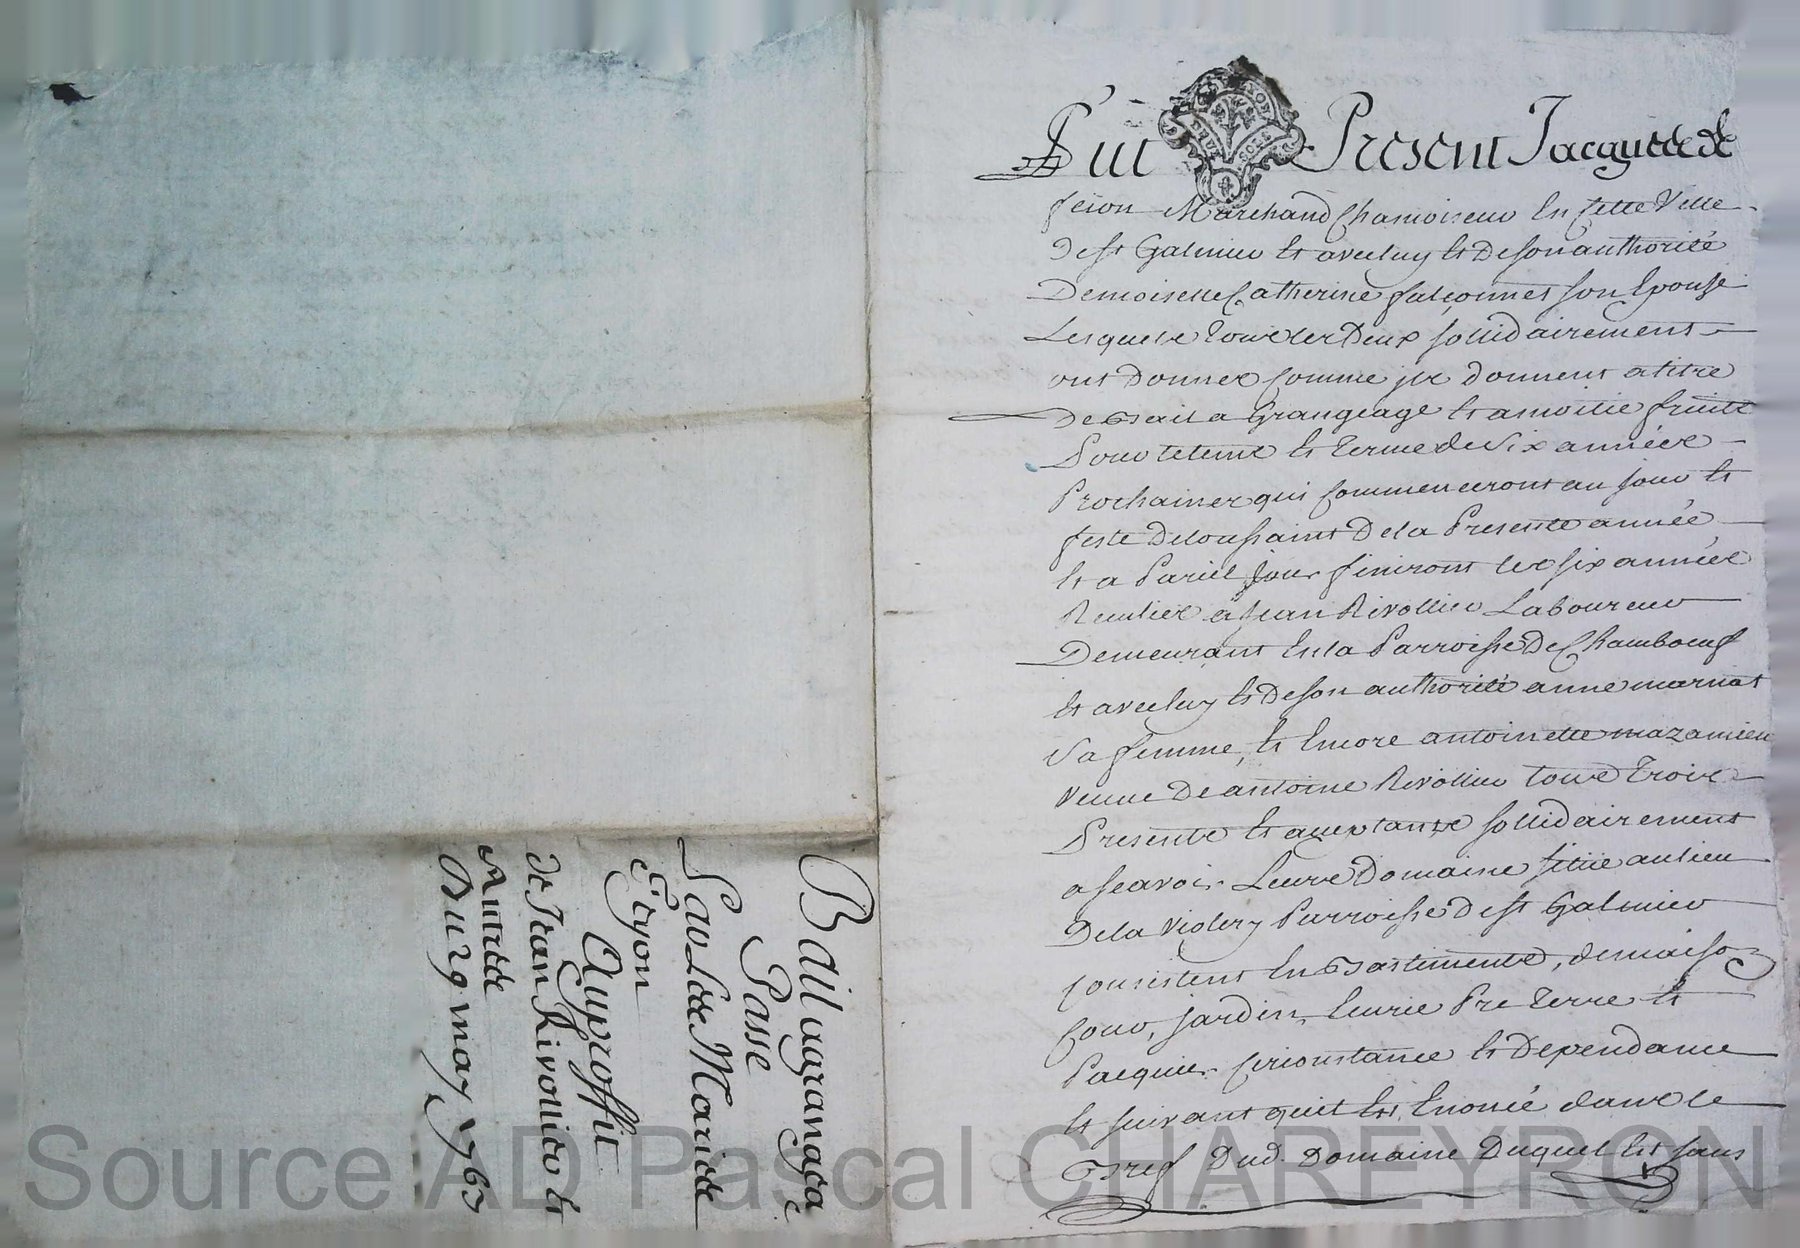 Bail agrangage
Passé
Par Les Mariés
Eyon
Auproffit
de Jean Rivollier et
Autres
Du 29 may 1763
Fut Present Jacques de
feion Marchand Chamoiseur En cette Ville
de st Galmier et avecluy et de son authorité
Demoiselle Catherine falconnet son Epouse
Lesquels tous les Deux sollidairement
ont Donnés comme ils donnent a titre
De Bail a Grangeage et amoitie fruits
Pour le tems et terme de six années
Prochaines qui commenceront au jour et
feste De toussaint De la Presente année
et a Pariel jour finiront les six années
Revolues a Jean Rivollier Laboureur
Demeurant En la Parroisse De Chamboeuf
et avecluy et De son authorité anne marnat
sa femme, et Encore antoinette mazanieu
veuve De antoine Rivollier tous Trois
Presents et acceptants sollidairement
a scavoir Leurs Domaine sitüé au lieu
De la Viglery Parroisse De st Galmier
consistent En Bastiments, de maison
cour, jardin, Ecurie Pre Terre et
Pacquier circonstance et Dependance
et suivant quil Est Enoncé dans le
Bref Dud. Domaine Duquel Est sans
Source AD Pascal CHAREYRON